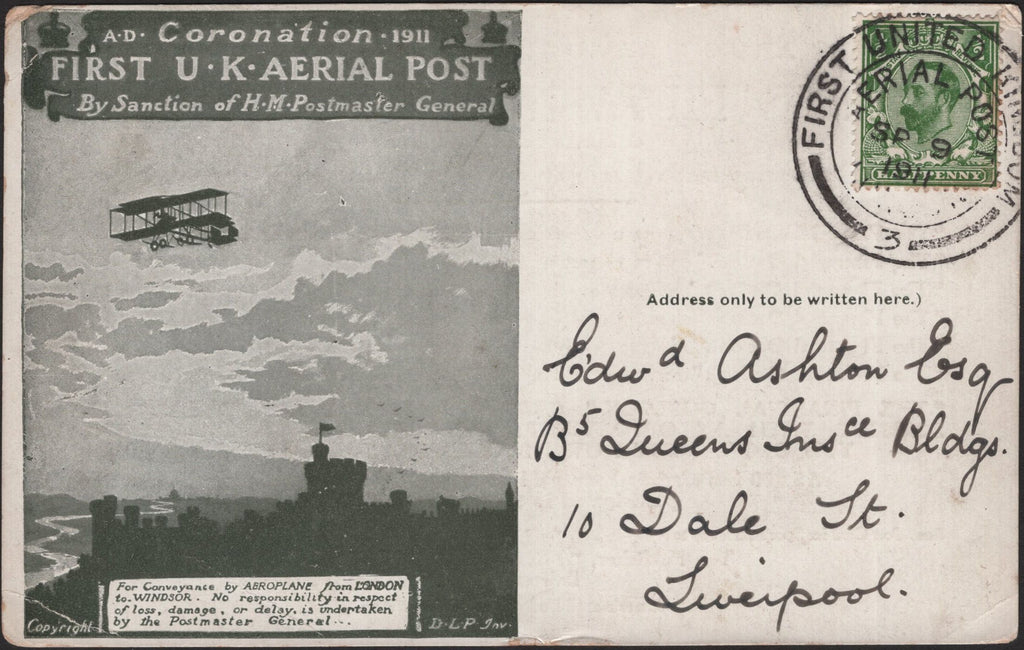 A·D· Coronation · 1911
FIRST U·K·AERIAL POST
By Sanction of H·M·Postmaster General
For Conveyance by AEROPLANE from LONDON
to WINDSOR. No responsibility in respect
of loss, damage, or delay, is undertaken
by the Postmaster General...
Copyright
D·L·P Inv.
FIRST UNITED KINGDOM
AERIAL POST
SP 9
1911
3
HALFPENNY
Address only to be written here.)
Edwd Ashton Esq
B5 Queens Insce Bldgs.
10 Dale St.
Liverpool.